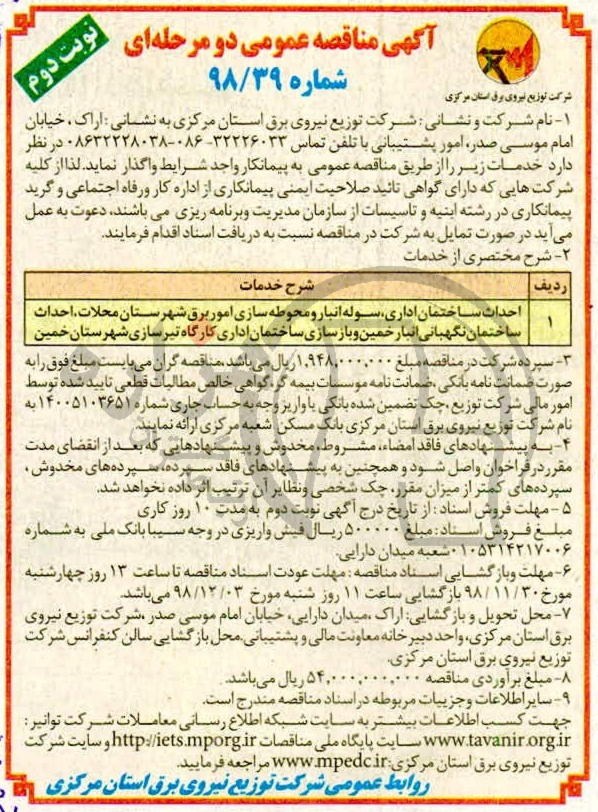 نوبت دوم
آگهی مناقصه عمومی دو مرحله‌ای
شماره ۹۸/۳۹
شرکت توزیع نیروی برق استان مرکزی
۱- نام شرکت و نشانی : شرکت توزیع نیروی برق استان مرکزی به نشانی : اراک ، خیابان
امام موسی صدر، امور پشتیبانی با تلفن تماس ۳۲۲۲۶۰۳۳-۰۸۶ - ۰۸۶۳۲۲۲۸۰۳۸ در نظر
دارد خدمات زیر را از طریق مناقصه عمومی به پیمانکار واجد شرایط واگذار نماید. لذا از کلیه
شرکت هایی که دارای گواهی تائید صلاحیت ایمنی پیمانکاری از اداره کار و رفاه اجتماعی و گرید
پیمانکاری در رشته ابنیه و تاسیسات از سازمان مدیریت و برنامه ریزی می باشند، دعوت به عمل
می آید در صورت تمایل به شرکت در مناقصه نسبت به دریافت اسناد اقدام فرمایند.
۲- شرح مختصری از خدمات
ردیف شرح خدمات
۱ احداث ساختمان اداری، سوله انبار و محوطه سازی امور برق شهرستان محلات، احداث
ساختمان نگهبانی انبار خمین و بازسازی ساختمان اداری کارگاه تیرسازی شهرستان خمین
۳- سپرده شرکت در مناقصه مبلغ ۱,۹۴۸,۰۰۰,۰۰۰ ریال می باشد. مناقصه گران می بایست مبلغ فوق را به
صورت ضمانت نامه بانکی ، ضمانت نامه موسسات بیمه گر، گواهی خالص مطالبات قطعی تایید شده توسط
امور مالی شرکت توزیع ، چک تضمین شده بانکی یا واریز وجه به حساب جاری شماره ۱۴۰۰۵۱۰۳۶۵۱ به
نام شرکت توزیع نیروی برق استان مرکزی بانک مسکن شعبه مرکزی ارائه نمایند.
۴- به پیشنهادهای فاقد امضاء، مشروط، مخدوش و پیشنهادهایی که بعد از انقضای مدت
مقرر در فراخوان واصل شود و همچنین به پیشنهادهای فاقد سپرده، سپرده‌های مخدوش ،
سپرده‌های کمتر از میزان مقرر، چک شخصی و نظایر آن ترتیب اثر داده نخواهد شد.
۵- مهلت فروش اسناد : از تاریخ درج آگهی نوبت دوم به مدت ۱۰ روز کاری
مبلغ فروش اسناد : مبلغ ۵۰۰۰۰۰ ریال فیش واریزی در وجه سیبا بانک ملی به شماره
۰۱۰۵۳۱۴۲۱۷۰۰۶ شعبه میدان دارایی.
۶- مهلت و بازگشایی اسناد مناقصه : مهلت عودت اسناد مناقصه تا ساعت ۱۳ روز چهارشنبه
مورخ ۹۸/۱۱/۳۰ بازگشایی ساعت ۱۱ روز شنبه مورخ ۹۸/۱۲/۰۳ می‌باشد.
۷- محل تحویل و بازگشایی: اراک ،میدان دارایی، خیابان امام موسی صدر ،شرکت توزیع نیروی
برق استان مرکزی، واحد دبیرخانه معاونت مالی و پشتیبانی. محل بازگشایی سالن کنفرانس شرکت
توزیع نیروی برق استان مرکزی.
۸- مبلغ برآوردی مناقصه ۵۴,۰۰۰,۰۰۰,۰۰۰ ریال می‌باشد.
۹- سایر اطلاعات و جزییات مربوطه در اسناد مناقصه مندرج است.
جهت کسب اطلاعات بیشتر به سایت شبکه اطلاع رسانی معاملات شرکت توانیر :
www.tavanir.org.ir سایت پایگاه ملی مناقصات http://iets.mporg.ir و سایت شرکت
توزیع نیروی برق استان مرکزی: www.mpedc.ir مراجعه فرمایید.
روابط عمومی شرکت توزیع نیروی برق استان مرکزی